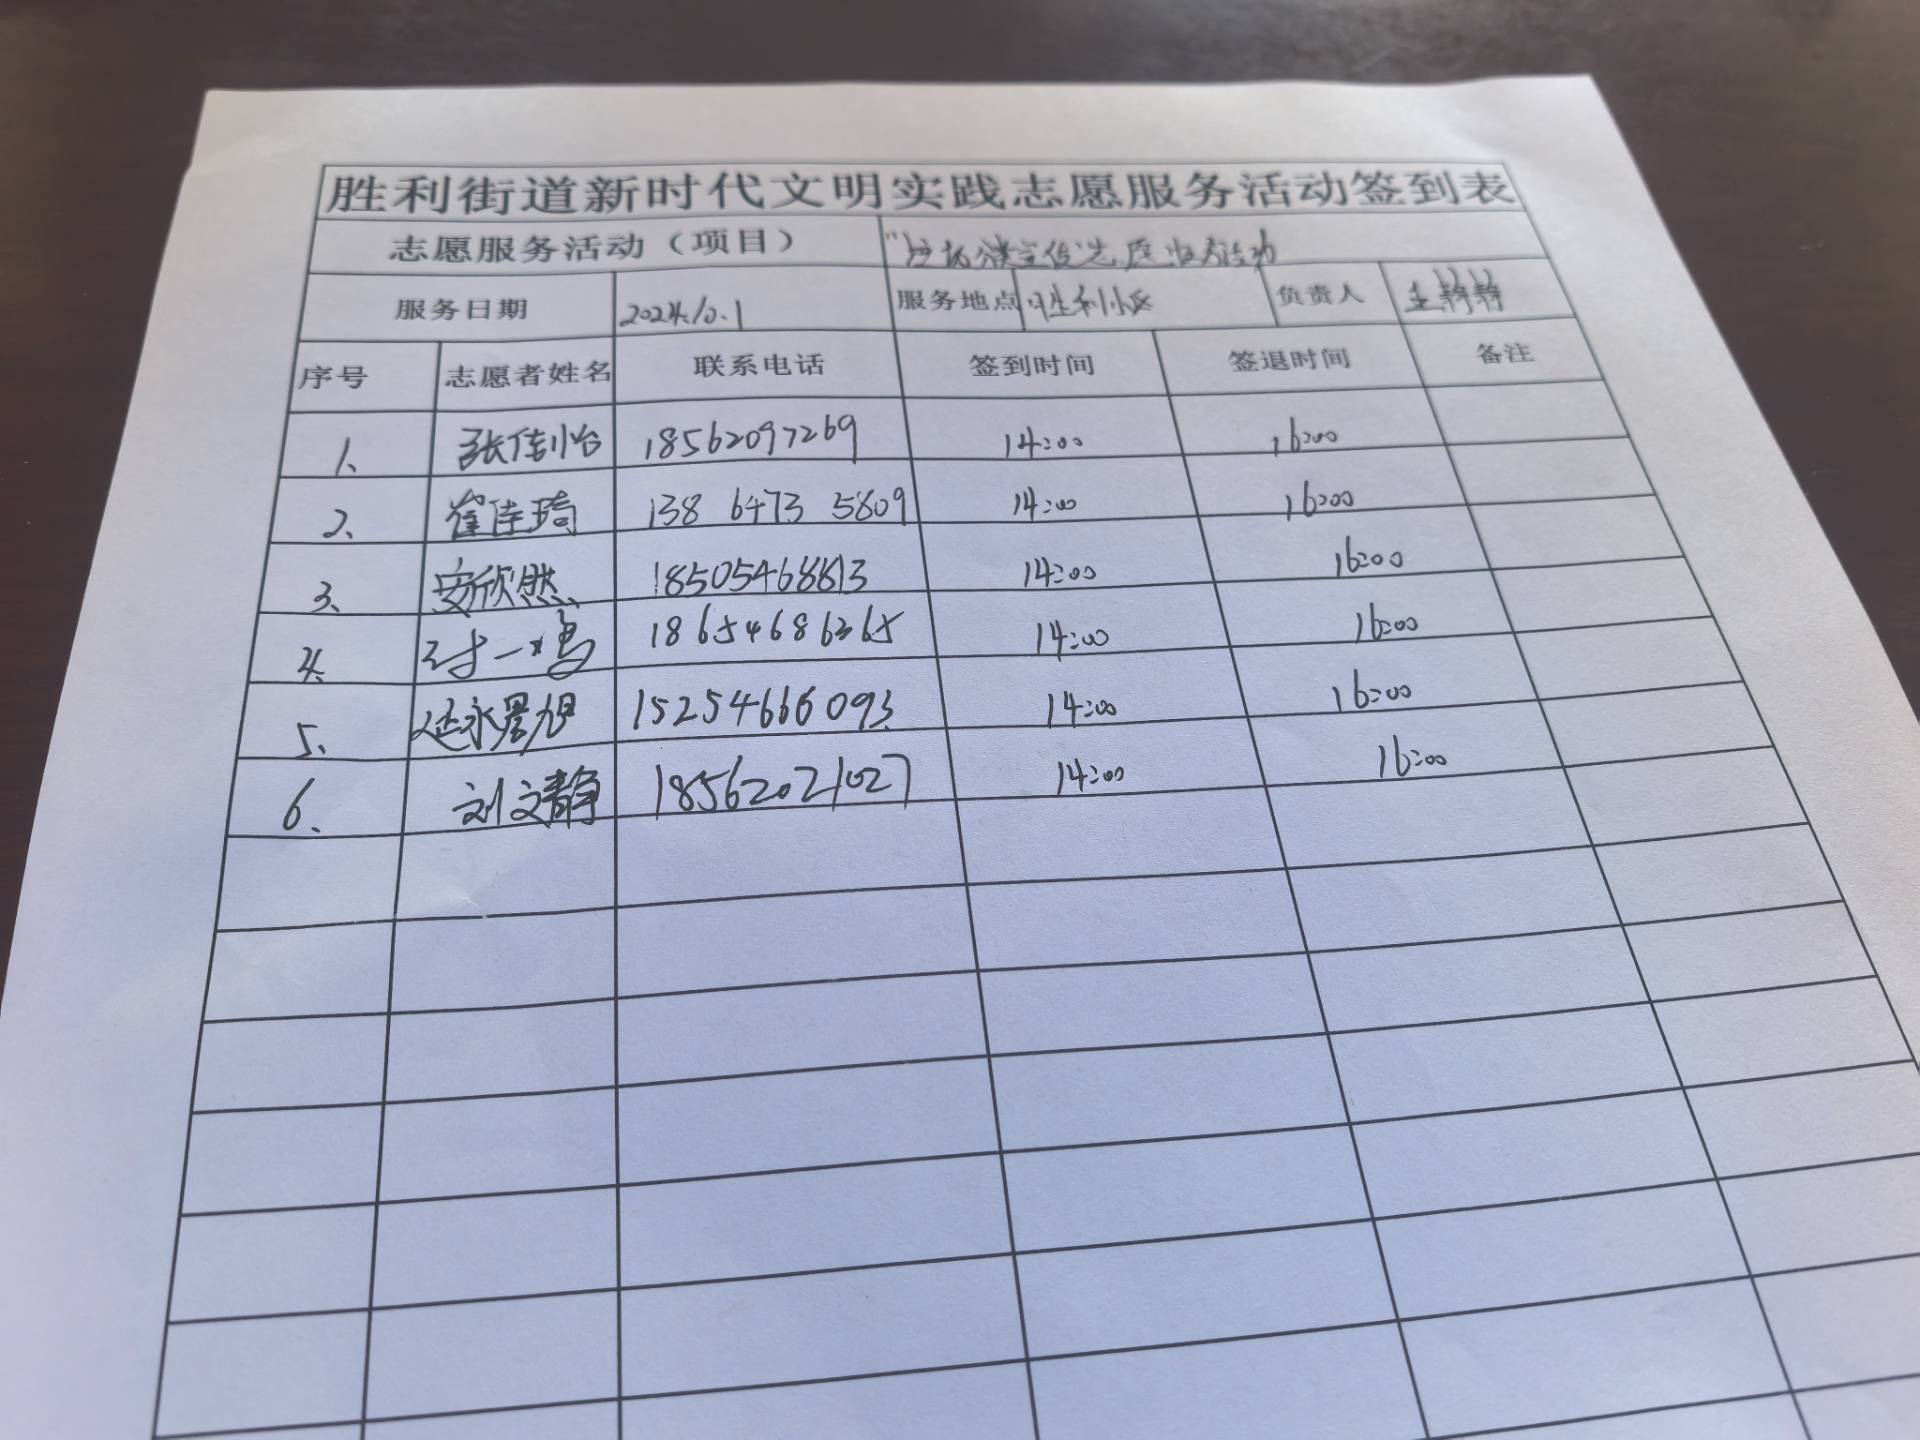 胜利街道新时代文明实践志愿服务活动签到表
志愿服务活动（项目）
服务日期 2024.10.1 服务地点 胜利小区 负责人 王静静
序号 志愿者姓名 联系电话 签到时间 签退时间 备注
1、 张佳怡 18562097269 14:00 16:00
2、 崔佳琦 138 6473 5809 14:00 16:00
3、 安欣然 18505468813 14:00 16:00
4、 一鸣 18654686365 14:00 16:00
5、 延永景旭 15254666093 14:00 16:00
6、 刘文静 18562021027 14:00 16:00